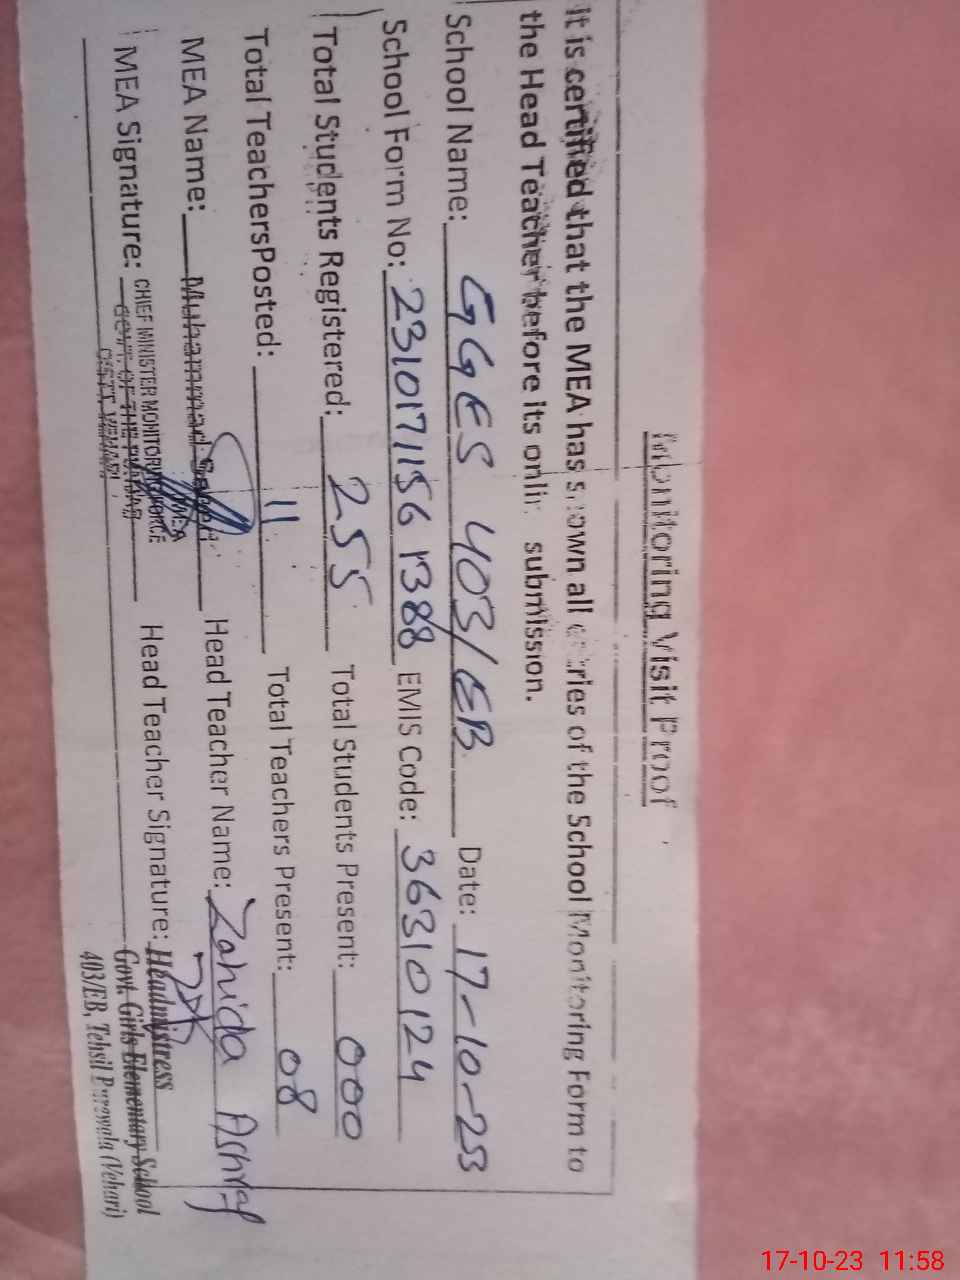 Monitoring Visit Proof
It is certified that the MEA has shown all entries of the School Monitoring Form to
the Head Teacher before its online submission.
School Name: GGES 403/EB Date: 17-10-23
School Form No: 23101711561388 EMIS Code: 36310124
Total Students Registered: 255 Total Students Present: 000
Total TeachersPosted: 11 Total Teachers Present: 08
MEA Name: Muhammad Head Teacher Name: Zahida Ashraf
MEA
MEA Signature: Head Teacher Signature:
CHIEF MINISTER MONITORING FORCE
GOVT. OF THE PUNJAB
DISTT. VEHARI
Headmistress
Govt. Girls Elementary School
403/EB, Tehsil Burewala (Vehari)
17-10-23 11:58